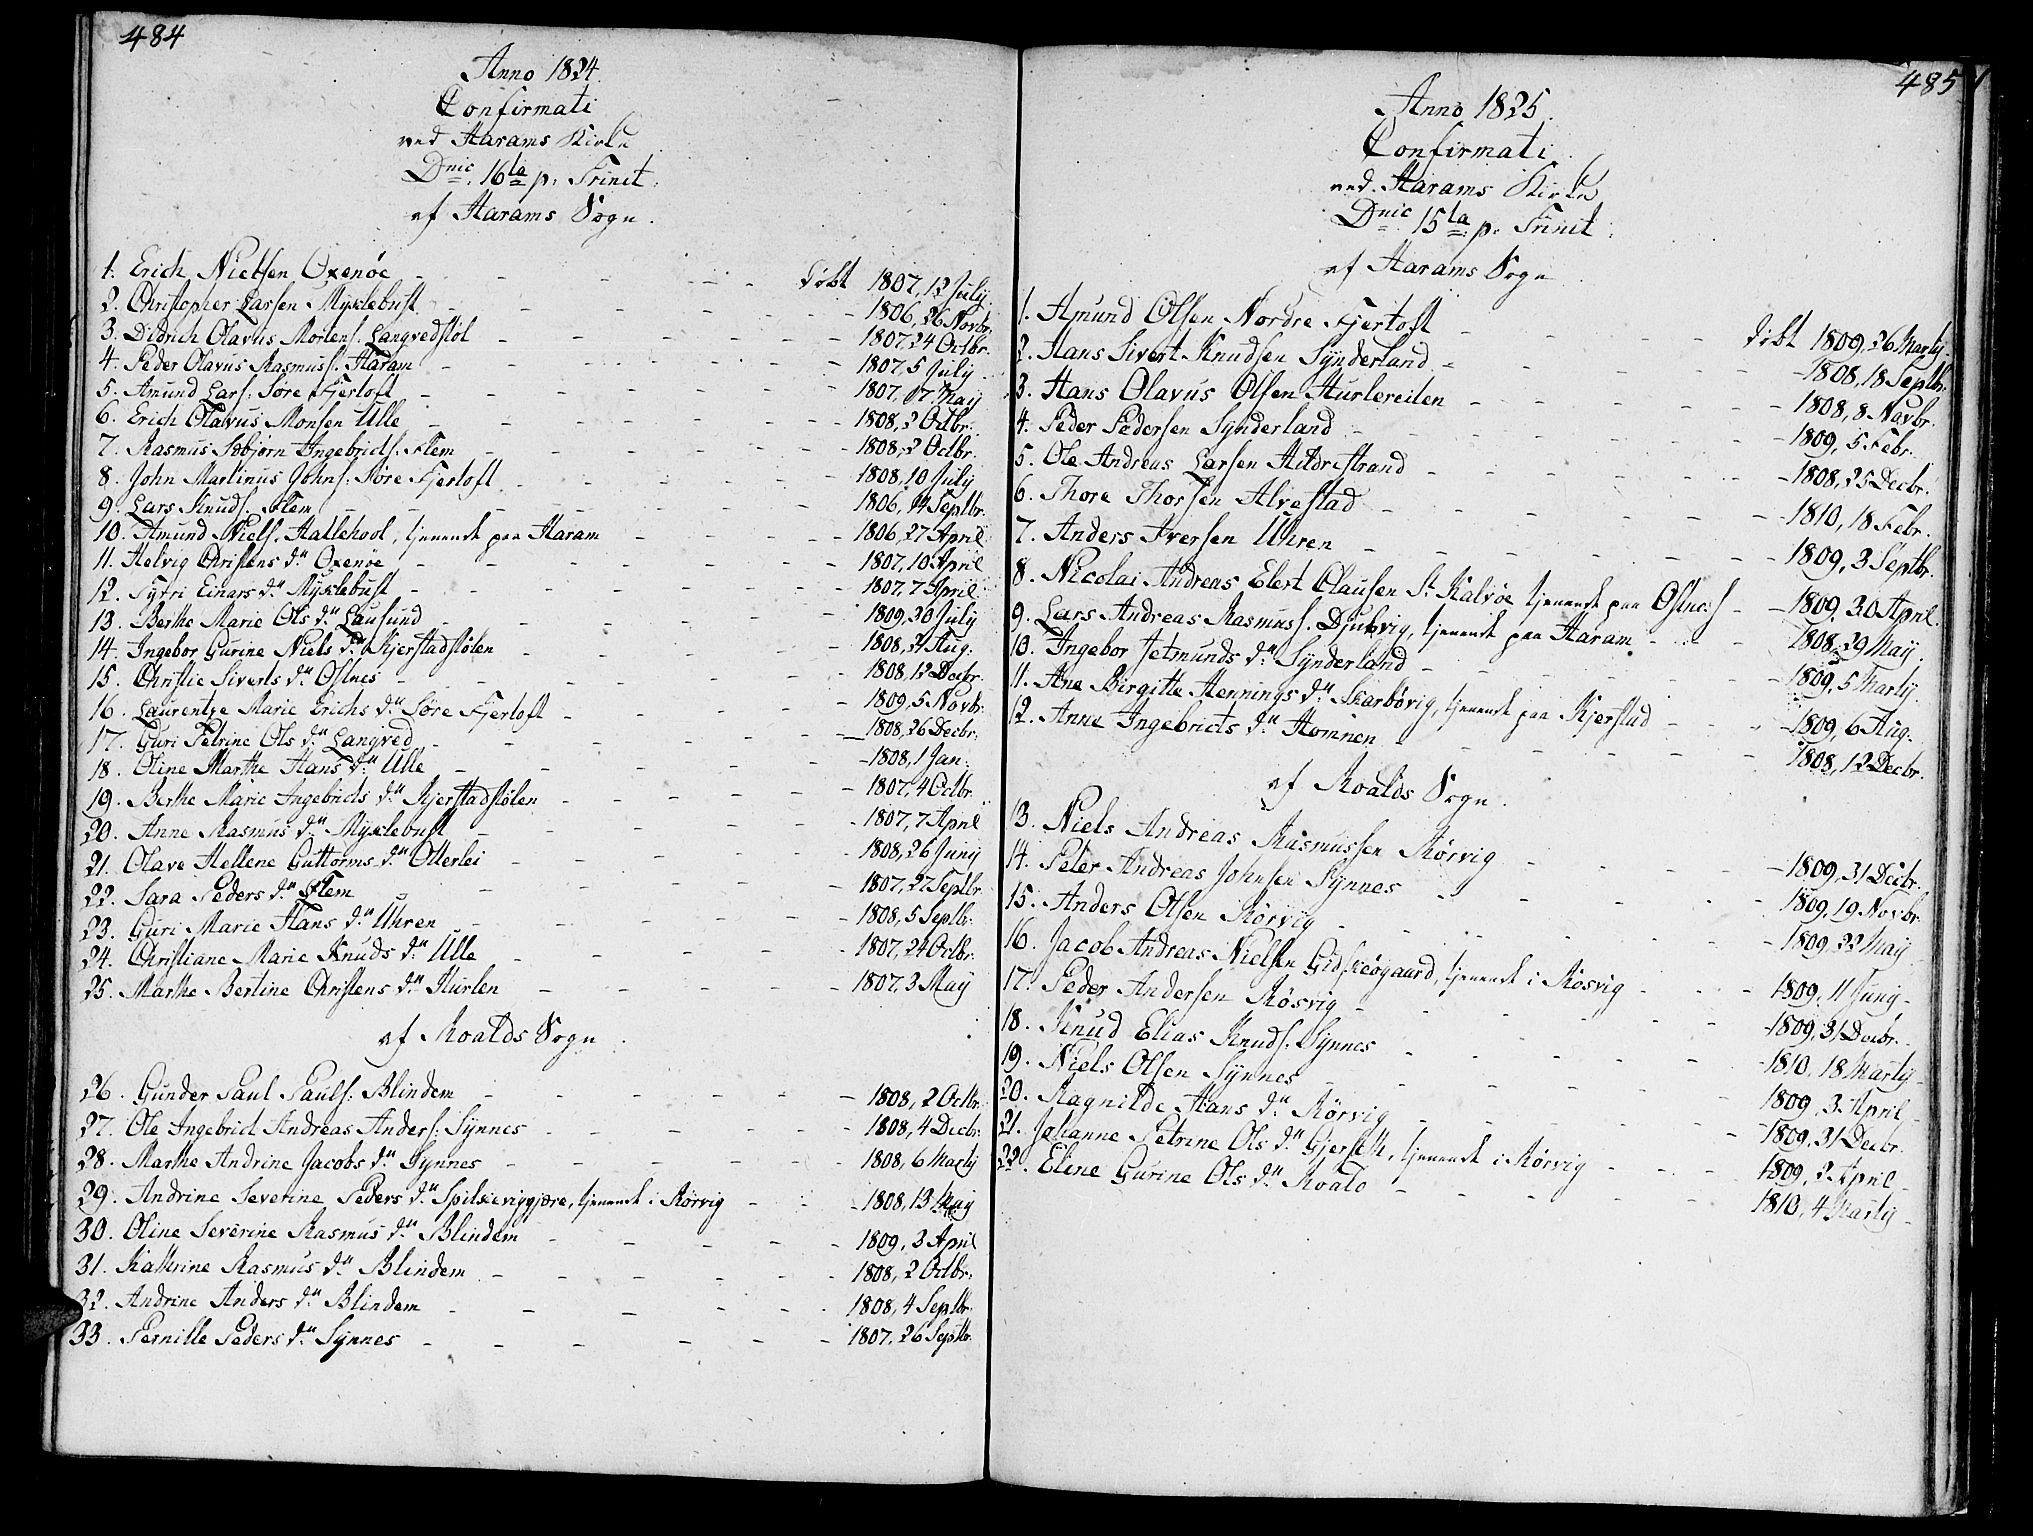 484
Anno 1824.
Confirmati
ved Harams Kirke
Dnic. 16ta p. Trinit.
af Harams Sogn.
1. Erich Nielsen Oxenøe - - - - døbt 1807, 12 July
2. Christopher Larsen Myklebust - - - 1806, 26 Novbr.
3. Didrich Olavus Mortens. Langvedstøl - - - 1807, 24 Octbr.
4. Peder Olavus Rasmuss. Haram - - - 1807, 5 July
5. Amund Lars. Søre Fjertoft - - - 1807, 17 May
6. Erich Olavus Monsen Ulle - - - 1808, 2 Octbr.
7. Rasmus Asbjørn Ingebrids. Flem - - - 1808, 2 Octbr.
8. John Martinus Johns. Søre Fjertoft - - - 1808, 10 July
9. Lars Knuds. Flem - - - 1806, 14 Septbr.
10. Amund Niels. Hatlehool, tjenende paa Haram - - - 1806, 27 April
11. Helvig Christens dr. Oxenøe - - - 1807, 10 April
12. Syfri Einars dr. Myklebust - - - 1807, 7 April
13. Berthe Marie Ols dr. Lausund - - - 1809, 30 July
14. Ingebor Gurine Niels dr. Kjerstadstølen - - - 1808, 21 Aug.
15. Christie Siverts dr. Ostnes - - - 1808, 12 Decbr.
16. Laurentze Marie Erichs dr. Søre Fjertoft - - - 1809, 5 Novbr.
17. Guri Petrine Ols dr. Langved - - - 1808, 26 Decbr.
18. Oline Marthe Hans dr. Ulle - - - 1808, 1 Jan.
19. Berthe Marie Ingebricts dr. Kjerstadstølen - - - 1807, 4 Octbr.
20. Anne Rasmus dr. Myklebust - - - 1807, 7 April
21. Olave Hellene Guttorms dr. Otterlei - - - 1808, 26 Juny
22. Sara Peders dr. Flem - - - 1807, 27 Septbr.
23. Guri Marie Hans dr. Uhren - - - 1808, 5 Septbr.
24. Christiane Marie Knuds dr. Ulle - - - 1807, 24 Octbr.
25. Marthe Bertine Christens dr. Hurlen - - - 1807, 3 May
af Roalds Sogn.
26. Gunder Paul Pauls. Blindem - - - 1808, 2 Octbr.
27. Ole Ingebrict Andreas Anders. Synnes - - - 1808, 4 Decbr.
28. Marthe Andrine Jacobs dr. Synnes - - - 1808, 6 Marty
29. Andrine Severine Peders dr. Spilkevigsjøre, tjenende i Rørvig - - - 1808, 13 May
30. Oline Severine Rasmus dr. Blindem - - - 1809, 3 April
31. Kathrine Rasmus dr. Blindem - - - 1808, 2 Octbr.
32. Andrine Anders dr. Blindem - - - 1808, 4 Septbr.
33. Pernille Peders dr. Synnes - - - 1807, 26 Septbr.
485
Anno 1825.
Confirmati
ved Harams Kirke
Dnic 15ta p. Trinit.
af Harams Sogn
1. Amund Olsen Nordre Fjertoft - - - døbt 1809, 26 Marty
2. Hans Sivert Knudsen Synderland - - - 1808, 18 Septbr.
3. Hans Olavus Olsen Hurlereiten - - - 1808, 8 Novbr.
4. Peder Pedersen Synderland - - - 1809, 5 Febr.
5. Ole Andreas Larsen Hildrestrand - - - 1808, 25 Decbr.
6. Thore Thorsen Alvestad - - - 1810, 18 Febr.
7. Anders Iversen Uhren - - - 1809, 3 Septbr.
8. Nicolai Andreas Elert Olausen St. Kalvøe tjenende paa Ostnes - - 1809, 30 April
9. Lars Andreas Rasmuss. Djubvig, tjenende paa Haram - - - 1808, 29 May
10. Ingebor Jetmunds dr. Synderland - - - 1809, 5 Marty
11. Ane Birgitte Hennings dr. Skarbøvig, tjenende paa Kjerstad - - - 1809, 6 Aug.
12. Anne Ingebricts dr. Hamnen - - - 1808, 12 Decbr.
af Roalds Sogn.
13. Niels Andreas Rasmussen Rørvig - - - 1809, 31 Decbr.
14. Peter Andreas Johnsen Synnes - - - 1809, 19 Novbr.
15. Anders Olsen Rørvig - - - 1809, 22 May
16. Jacob Andreas Nielsen Gidskeøgaard, tjenende i Røsvig - - - 1809, 11 Juny
17. Peder Andersen Røsvig - - - 1809, 31 Decbr.
18. Knud Elias Knuds. Synnes - - - 1810, 18 Marty
19. Niels Olsen Synnes - - - 1809, 3 April
20. Ragnilde Hans dr. Rørvig - - - 1809, 31 Decbr.
21. Johanne Petrine Ols dr. Gjerseth, tjenende i Rørvig - - - 1809, 2 April
22. Eline Gurine Ols dr. Roald - - - 1810, 4 Marty